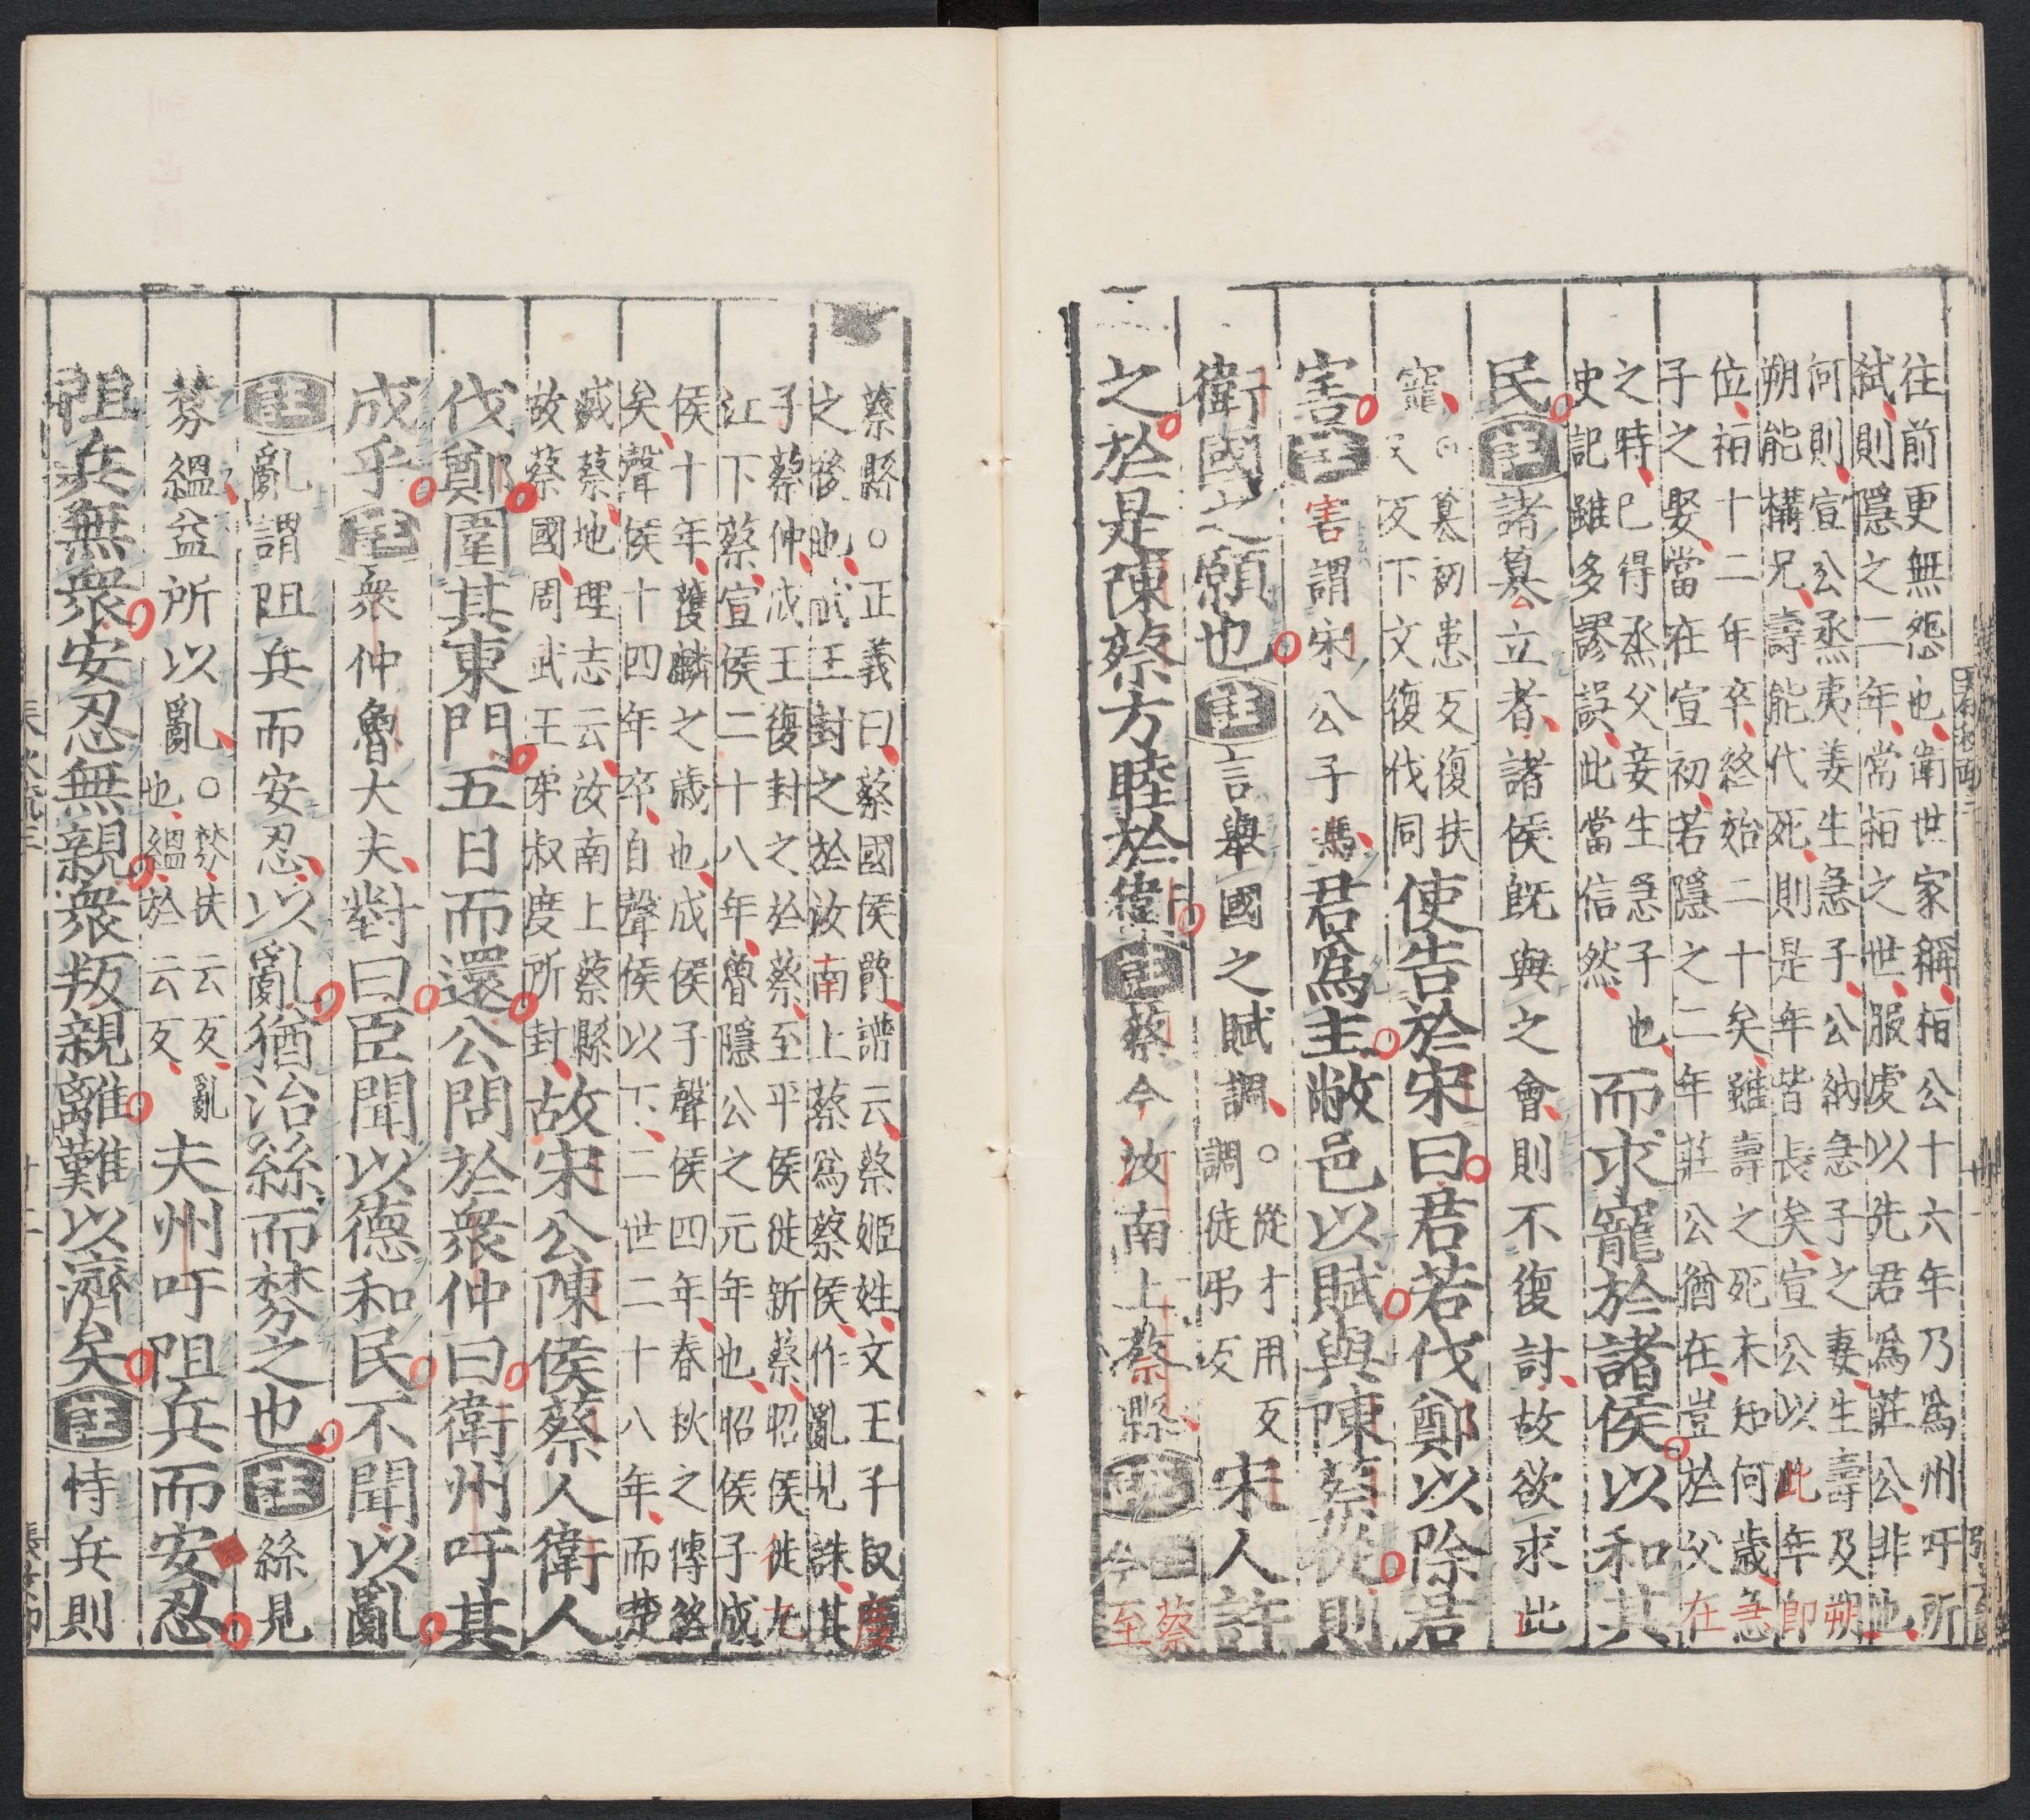 往前更無怨也衛世家稱桓公十六年乃爲州吁所
弒則隱之二年常桓之世服虔以先君爲莊公非也
何則宣公烝夷姜生急子公納急子之妻生壽及朔
朔能構兄壽能代死則是年皆長矣宣公以此年即
位桓十二年卒終始二十矣雖壽之死未知何歲急
子之娶當在宣初若隱之二年莊公猶在豈於父在
之時已得烝父妾生急子也
史記雖多謬誤此當信然
而求寵於諸侯以和其
民注諸篡立者諸侯既與之會則不復討故欲求此
寵
篡初患反復扶
又反下文復伐同
使告於宋曰君若伐鄭以除君
害注害謂宋公子馮君爲主敝邑以賦與陳蔡從則
衛國之願也注言舉國之賦調○
從才用反
調徒弔反
宋人許
之於是陳蔡方睦於衛注蔡今汝南上蔡縣疏
注蔡
今至
蔡縣○正義曰蔡國侯爵譜云蔡姬姓文王子叔度
之後也武王封之於汝南上蔡爲蔡侯作亂見誅其
子蔡仲成王復封之於蔡至平侯徙新蔡昭侯徙九
江下蔡宣侯二十八年魯隱公之元年也昭侯子成
侯十年獲麟之歲也成侯子聲侯四年春秋之傳終
矣聲侯十四年卒自聲侯以下二世二十八年而楚
滅蔡地理志云汝南上蔡縣
故蔡國周武王弟叔度所封
故宋公陳侯蔡人衛人
伐鄭圍其東門五日而還公問於衆仲曰衛州吁其
成乎注衆仲魯大夫對曰臣聞以德和民不聞以亂
注亂謂阻兵而安忍以亂猶治絲而棼之也注絲見
棼縕益所以亂○
棼扶云反亂
也縕於云反
夫州吁阻兵而安忍
阻兵無衆安忍無親衆叛親離難以濟矣注恃兵則